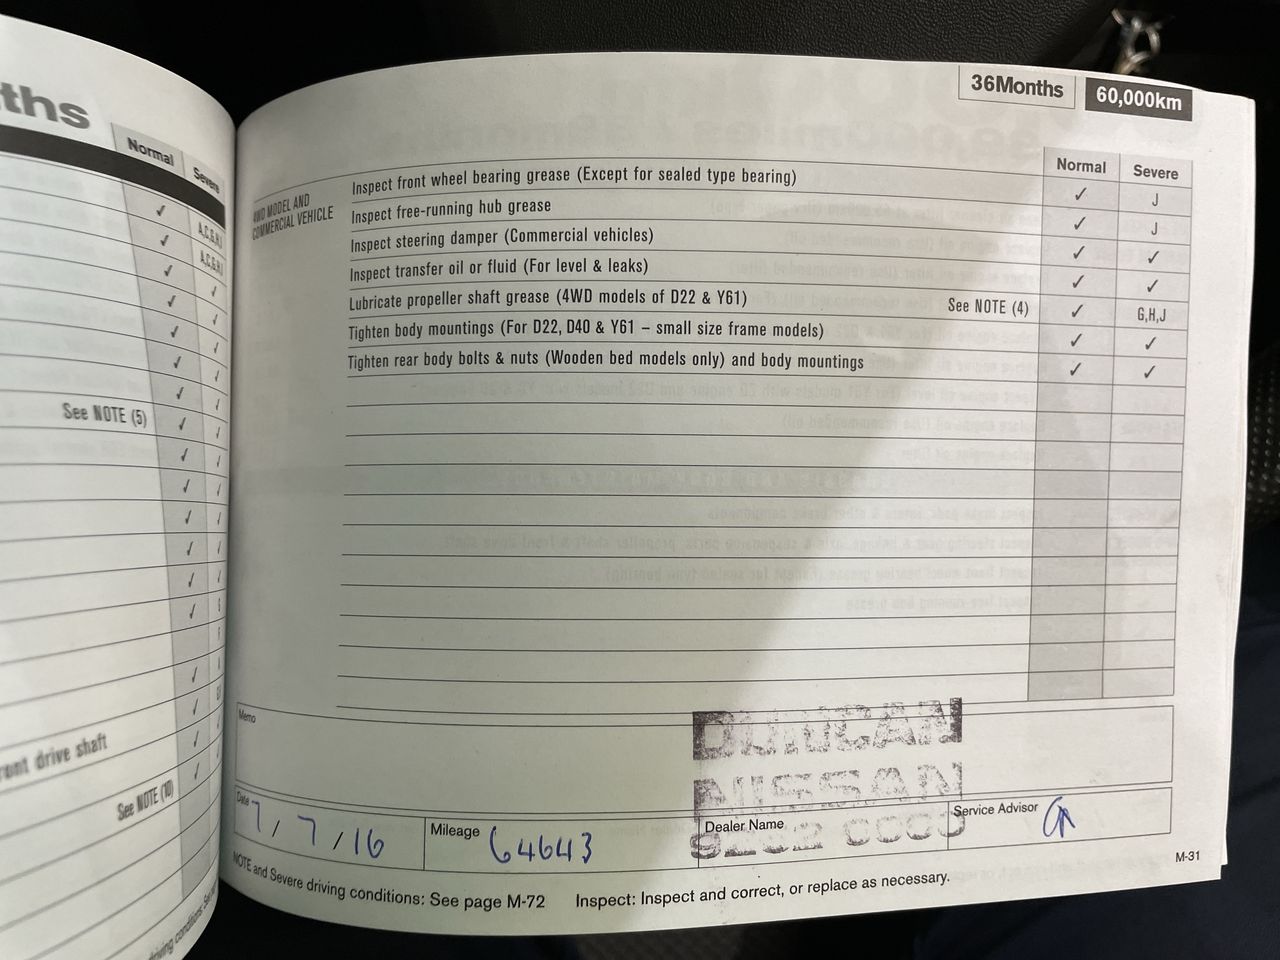 ths
Normal
Severe
✓ A,C,G,H,J
✓ A,C,G,H,J
See NOTE (5)
ront drive shaft
See NOTE (10)
36Months 60,000km
Normal Severe
4WD MODEL AND
COMMERCIAL VEHICLE
Inspect front wheel bearing grease (Except for sealed type bearing) ✓ J
Inspect free-running hub grease ✓ J
Inspect steering damper (Commercial vehicles) ✓ ✓
Inspect transfer oil or fluid (For level & leaks) ✓ ✓
Lubricate propeller shaft grease (4WD models of D22 & Y61) See NOTE (4) ✓ G,H,J
Tighten body mountings (For D22, D40 & Y61 – small size frame models) ✓ ✓
Tighten rear body bolts & nuts (Wooden bed models only) and body mountings ✓ ✓
Memo
DUNCAN
NISSAN
Date 7/7/16
Mileage 64643
Dealer Name
Service Advisor
NOTE and Severe driving conditions: See page M-72 Inspect: Inspect and correct, or replace as necessary.
M-31